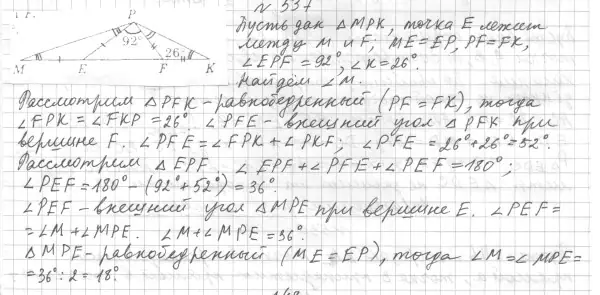 № 537
г.
P
92°
26
M E F K
Пусть дан △MPK, точка E лежит
между M и F, ME=EP, PF=FK,
∠EPF=92°, ∠K=26°.
Найдём ∠M.
Рассмотрим △PFK-равнобедренный (PF=FK), тогда
∠FPK=∠FKP=26° ∠PFE-внешний угол △PFK при
вершине F. ∠PFE=∠FPK+∠PKF; ∠PFE=26°+26°=52°.
Рассмотрим △EPF. ∠EPF+∠PFE+∠PEF=180°;
∠PEF=180°-(92°+52°)=36°.
∠PEF-внешний угол △MPE при вершине E. ∠PEF=
=∠M+∠MPE. ∠M+∠MPE=36°.
△MPE-равнобедренный (ME=EP), тогда ∠M=∠MPE=
=36°:2=18°.